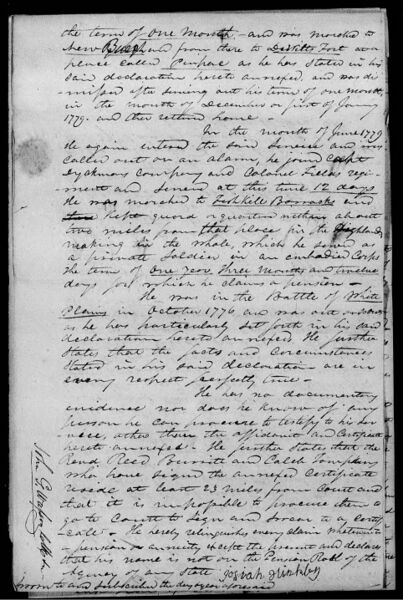 the term of One Month - and was marched to
New and from there to DeWitts Fort at a
place called as he has stated in his
said declaration hereto annexed, and was dis
missed after serving out his term of one month,
in the month of December or first of January
1779. and then return home -
In the month of June 1779
He again entered the said service and was
called out on an alarm, he joined Capt
Company and Colonel Fields regi-
ment and served at this time 12 days
He was marched to Fishkill Barracks and
kept guard or quarters within about
two miles from that place in the Highlands
making in the whole, which he served as
a private soldier in an embodied Corps
the term of One Year Three Months and twelve
days for which he claims a pension -
He was in the Battle of White
Plains in October 1776 and was
as he has particularly set forth in his said
declaration hereto annexed. He further
States that the facts and circumstances
stated in his said declaration are in
every respect perfectly true -
He has no documentary
evidence nor does he know of any
person he can procure to testify to his ser-
vices, other than the affidavit and Certificate
hereto annexed. He further States that the
Revd Reed Burritt and Caleb Tompkins
who have signed the annexed Certificate
reside at least 23 miles from Court and
that it is impossible to procure them to
go to Court to sign and swear to a certifi
cate - He hereby relinquishes every claim whatever to
a pension or annuity except the present and declares
that his name is not on the Pension Roll of the
Agency of any State Josiah
Sworn to and subscribed the day & year aforesaid
John G.